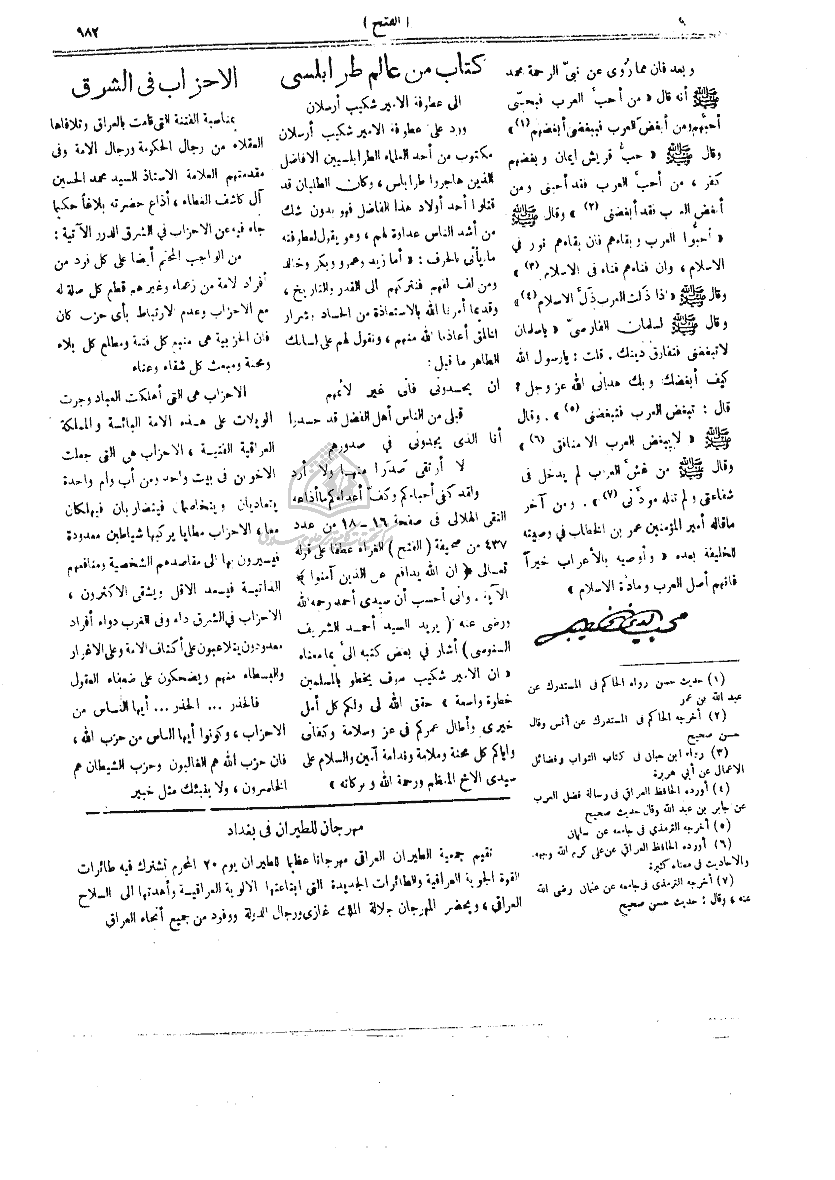 ( الفتح )
٩٨٢
و بعد فان مما رُوى عن نبيّ الرحمة محمد
ﷺ أنه قال « من أحبّ العرب فبحبّى
أحبّهم ومن أبغض العرب فببغضى أبغضهم (١) »
وقال ﷺ « حبُّ قريش ايمان وبغضهم
كفر ، من أحبّ العرب فقد أحبنى ومن
أبغض العرب فقد أبغضنى (٢) » وقال ﷺ
« أحبُّوا العرب وبقاءهم فان بقاءهم نور في
الاسلام ، وان فناءهم فناء فى الاسلام (٣) »
وقال ﷺ « اذا ذلت العرب ذلّ الاسلام (٤) »
وقال ﷺ لسلمان الفارسىّ « ياسلمان
لاتبغضنى فتفارق دينك . قلت : يارسول الله
كيف أبغضك وبك هدانى الله عز وجل ؟
قال : تبغض العرب فتبغضنى (٥) » . وقال
ﷺ « لايبغض العرب الا منافق (٦) »
وقال ﷺ من غشّ العرب لم يدخل فى
شفاعتى ولم تنله مودتى (٧) » . ومن آخر
ماقاله أمير المؤمنين عمر بن الخطاب فى وصيته
للخليفة بعده « وأوصيه بالأعراب خيراً
فانهم أصل العرب ومادّة الاسلام »
محب الدين الخطيب
(١) حديث حسن رواه الحاكم فى المستدرك عن
عبد الله بن عمر
(٢) أخرجه الحاكم فى المستدرك عن أنس وقال
حسن صحيح
(٣) رواه ابن حبان فى كتاب الثواب وفضائل
الاعمال عن أبي هريرة
(٤) أورده الحافظ العراقى فى رسالة فضل العرب
عن جابر بن عبد الله وقال حديث صحيح
(٥) أخرجه الترمذى فى جامعه عن سلمان
(٦) أورده الحافظ العراقى عن على كرم الله وجهه
والاحاديث فى معناه كثيرة
(٧) أخرجه الترمذى فى جامعه عن عثمان رضى الله
عنه ، وقال : حديث حسن صحيح
كتاب من عالم طرابلسى
الى عطوفة الامير شكيب أرسلان
ورد على عطوفة الامير شكيب أرسلان
مكتوب من أحد العلماء الطرابلسيين الافاضل
الذين هاجروا طرابلس ، وكان الطليان قد
قتلوا أحد أولاد هذا الفاضل فهو بدون شك
من أشد الناس عداوة لهم ، وهو يقول لعطوفته
ما يأتى بالحرف : « أما زيد وعمرو وبكر وخالد
ومن لف لفهم فنتركهم الى القدر والتاريخ ،
وقديما أمرنا الله بالاستعاذة من الحساد بشرار
الخلق أعاذنا الله منهم ، ونقول لهم على لسانك
الطاهر ما قيل :
ان يحسدونى فانى غير لائمهم
قبلى من الناس أهل الفضل قد حسدوا
أنا الذى يجدونى فى صدورهم
لا أرتقى صدَرا منها ولا أرد
ولقد كفى أحباءكم وكفّ أعداءكم ما أذاعه
التقى الهلالى فى صفحة ١٦ - ١٨ من عدد
٤٣٧ من صحيفة ( الفتح ) الغراء عطفا على قوله
تعالى ﴿ ان الله يدافع عن الذين آمنوا ﴾
الآية ، وانى أحسب أن سيدى أحمد رحمه الله
ورضى عنه ( يريد السيد أحمد الشريف
السنوسى ) أشار فى بعض كتبه الىّ بما معناه
« ان الامير شكيب سوف يخطو بالمسلمين
خطوة واسعة » حقق الله لى ولكم كل أمل
خيرى وأطال عمركم فى عز وسلامة وكفانى
واياكم كل محنة وملامة وندامة آمين والسلام على
سيدى الاخ المعظم ورحمة الله وبركاته »
الاحزاب فى الشرق
بمناسبة الفتنة التى قامت بالعراق وتلافاها
العقلاء من رجال الحكومة ورجال الامة وفى
مقدمتهم العلامة الاستاذ السيد محمد الحسين
آل كاشف الغطاء ، أذاع حضرته بلاغاً حكيما
جاء فيه عن الاحزاب في الشرق الدرر الآتية :
من الواجب المحتم أيضا على كل فرد من
أفراد لامة من زعماء وغيرهم قطع كل صلة له
مع الاحزاب وعدم الارتباط بأى حزب كان
فان الحزبية هى منبع كل فتنة ومطلع كل بلاء
ومحنة ومبعث كل شقاء وعناء
الاحزاب هى التى أهلكت العباد وجرت
الويلات على هذه الامة البائسة والمملكة
العراقية الفتية ، الاحزاب هى التى جعلت
الاخوين فى بيت واحد ومن أب وأم واحدة
يتعاديان ويتخاصمان فيتضاربان فيهلكان
معا ، الاحزاب مطايا يركبها شياطين معدودة
فيسيرون بها الى مقاصدهم الشخصية ومنافعهم
الذاتية فيسعد الاقل ويشقى الاكثرون ،
الاحزاب فى الشرق داء وفى الغرب دواء أفراد
معدودون يتلاعبون على أكتاف الامة وعلى الاغرار
والبسطاء منهم ويضحكون على ضعفاء العقول
فالحذر ... الحذر ... أيها الناس من
الاحزاب ، وكونوا أيها الناس من حزب الله ،
فان حزب الله هم الغالبون وحزب الشيطان هم
الخاسرون ، ولا ينبئك مثل خبير
مهرجان للطيران فى بغداد
تقيم جمعية الطيران العراقى مهرجانا عظيما للطيران يوم ٢٠ المحرم تشترك فيه طائرات
القوة الجوية العراقية والطائرات الجديدة التى ابتاعتها الالوية العراقية وأهدتها الى السلاح
العراقى ، ويحضر المهرجان جلالة الملك غازى ورجال الدولة ووفود من جميع أنحاء العراق